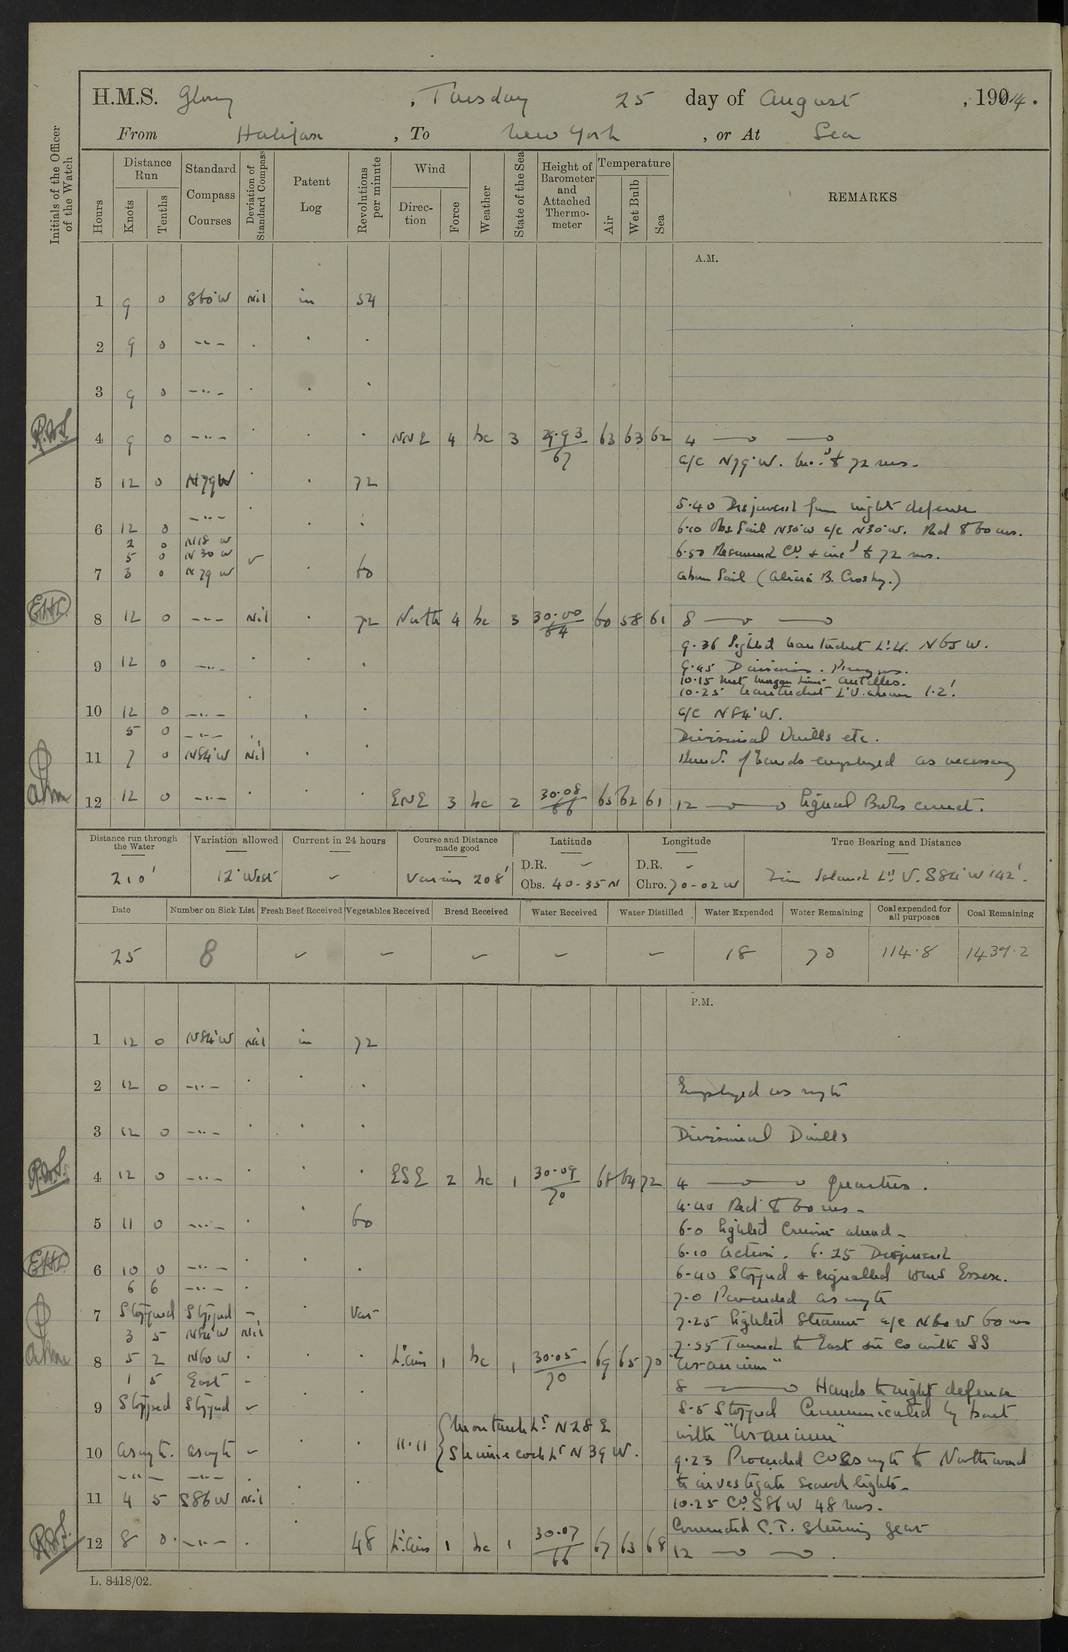 H.M.S. Glory , Tuesday 25 day of August , 1914.
From Halifax , To New York , or At Sea
Initials of the Officer of the Watch
Hours
Distance Run
Knots
Tenths
Standard Compass Courses
Deviation of Standard Compass
Patent Log
Revolutions per minute
Wind
Direction
Force
Weather
State of the Sea
Height of Barometer and Attached Thermometer
Temperature
Air
Wet Bulb
Sea
REMARKS
A.M.
1 9 0 S60°W Nil in 54
2 9 0 -..- . . .
3 9 0 -..- . . .
4 9 0 -..- . . . NNE 4 bc 3 29.93/67 63 63 62 4
a/c N79°W. to 72 revs.
5 12 0 N79W . . 72
5.40 Dispersed from night defence
6 12 0 -..-
6.10 Obs Sail N30°W a/c N30°W. Red to 60 revs.
2 0 N18 W
5 0 N30 W
6.50 Resumed Co & incd to 72 revs.
7 3 0 N79 W . 60
Sail (Alicia B. Crosby.)
8 12 0 --- Nil . 72 North 4 bc 3 30.00/64 60 58 61 8
9.36 Sighted Nantucket Lt V. N65 W.
9 12 0 -..- . . .
9.45 Divisions. Prayers.
10.15 met Morgan Line Antilles.
10.25 Nantucket L.V. abeam 1.2'.
10 12 0 -..- . .
a/c N84°W.
5 0 -..-
Divisional Drills etc.
11 7 0 N84°W Nil . .
Hands employed as necessary
12 12 0 -..- . . . ENE 3 bc 2 30.08/66 65 62 61 12 Signal Books correct.
R.W.S.
E.H.L.
Distance run through the Water
210'
Variation allowed
12° West
Current in 24 hours
-
Course and Distance made good
Various 208'
Latitude
D.R. -
Obs. 40-35 N
Longitude
D.R. -
Chro. 70-02 W
True Bearing and Distance
Fire Island Lt V. S84°W 142'.
Date
Number on Sick List
Fresh Beef Received
Vegetables Received
Bread Received
Water Received
Water Distilled
Water Expended
Water Remaining
Coal expended for all purposes
Coal Remaining
25 8 - - - - - 18 70 114.8 1437.2
P.M.
1 12 0 N84°W Nil in 72
2 12 0 -..- . . .
Employed as reqte
3 12 0 -..- . . .
Divisional Drills
4 12 0 -..- . . . ESE 2 bc 1 30.09/70 68 64 72 4 Quarters.
4.40 Red to 60 revs.
5 11 0 -..- . . 60
6.0 Sighted Cruiser ahead.
6.10 Action. 6.25 Dispersed
6 10 0 -..- . . .
6.40 Stopped & signalled HMS Essex.
6 6 -..-
7.0 Proceeded as reqte
7 Stopped Stopped - . Var
7.25 Sighted Steamer a/c N60W 60 revs
3 5 N84°W Nil
7.55 Turned to East on Co with SS
8 5 2 N60W . . Lt airs 1 bc 1 30.05/70 69 65 70 "Uranium"
1 5 East -
8 Hands to night defence
9 Stopped Stopped
8.5 Stopped Communicated by boat
with "Uranium"
{Montauk Lt N28 E
Shinnecock Lt N39 W.
10 as reqte. as reqte -
9.23 Proceeded Co as reqte to Northward
to investigate search lights.
11 4 5 S86W Nil
10.25 Co S86W 48 revs.
Connected C.T. Steering gear
12 8 0 -..- . . 48 Lt airs 1 bc 1 30.07/66 67 63 68 12
R.W.S.
E.H.L.
R.W.S.
L. 8418/02.